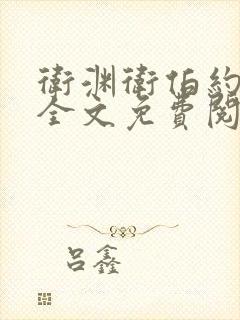 衛渊衛伯約
全文免費閱
吕鑫